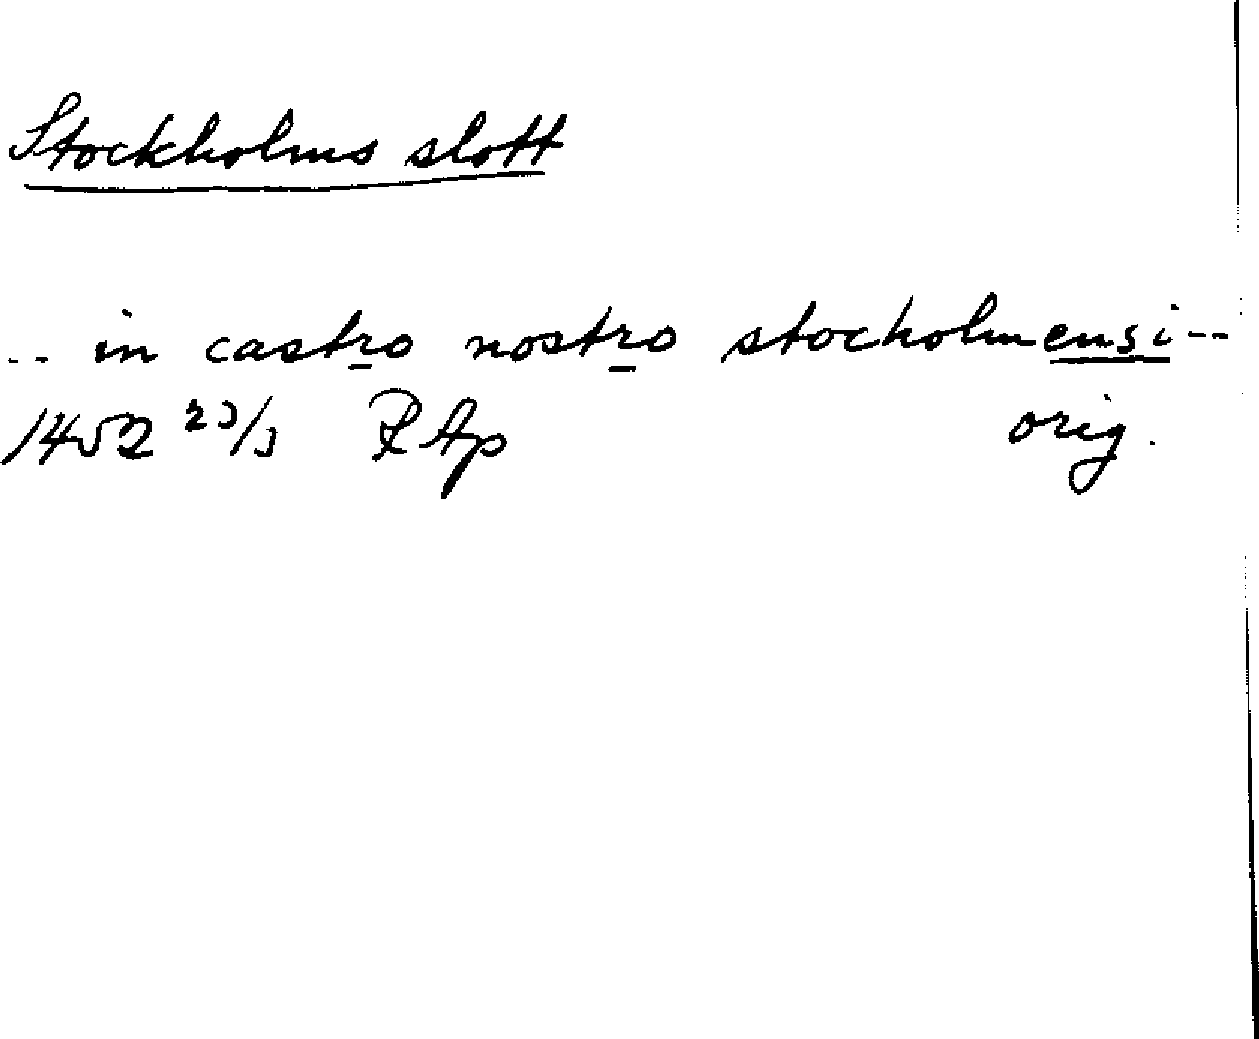 Stockholms slott
-- in castro nostro stocholmensi --
1452 23/3 RAp orig.